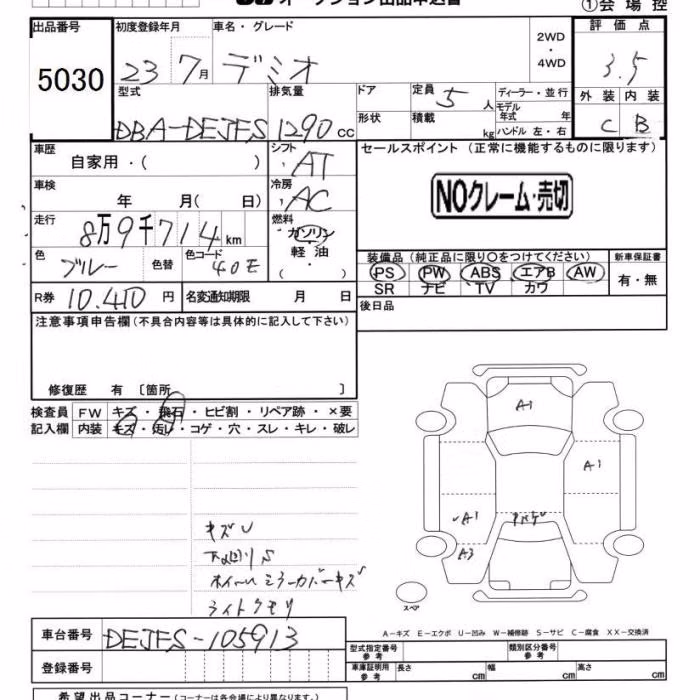 オークション出品申込書
①会場控
出品番号
5030
初度登録年月
23 7月
車名・グレード
デミオ
2WD
・
4WD
評価点
3.5
型式
DBA-DEJFS
排気量
1290cc
ドア
形状
定員 5人
積載 kg
ディーラー・並行
モデル年式 年
ハンドル 左・右
外装 内装
C B
車歴
自家用・( )
シフト
AT
セールスポイント (正常に機能するものに限ります)
NOクレーム・売切
車検
年 月( 日)
冷房
AC
走行
8万9千714km
燃料
ガソリン
軽油
・( )
色
ブルー
色替
色コード
40E
装備品(純正品に限り○をつけてください)
PS PW ABS エアB AW
SR ナビ TV カワ
新車保証書
有・無
R券 10.410円
名変通知期限 月 日
後日品
注意事項申告欄(不具合内容等は具体的に記入して下さい)
修復歴 有 〔箇所 〕
検査員
記入欄
FW キズ・飛石・ヒビ割・リペア跡・×要
内装 キズ・汚レ・コゲ・穴・スレ・キレ・破レ
A1
A1
A1
A3
キズU
下廻りS
ホイールミラーカバーキズ
ライトクモリ
スペア
A-キズ E-エクボ U-凹み W-補修跡 S-サビ C-腐食 XX-交換済
車台番号
DEJFS-105913
登録番号
型式指定番号
参考
類別区分番号
参考
車庫証明用
参考
長さ cm 幅 cm 高さ cm
希望出品コーナー(コーナーは各会場により異なります。)